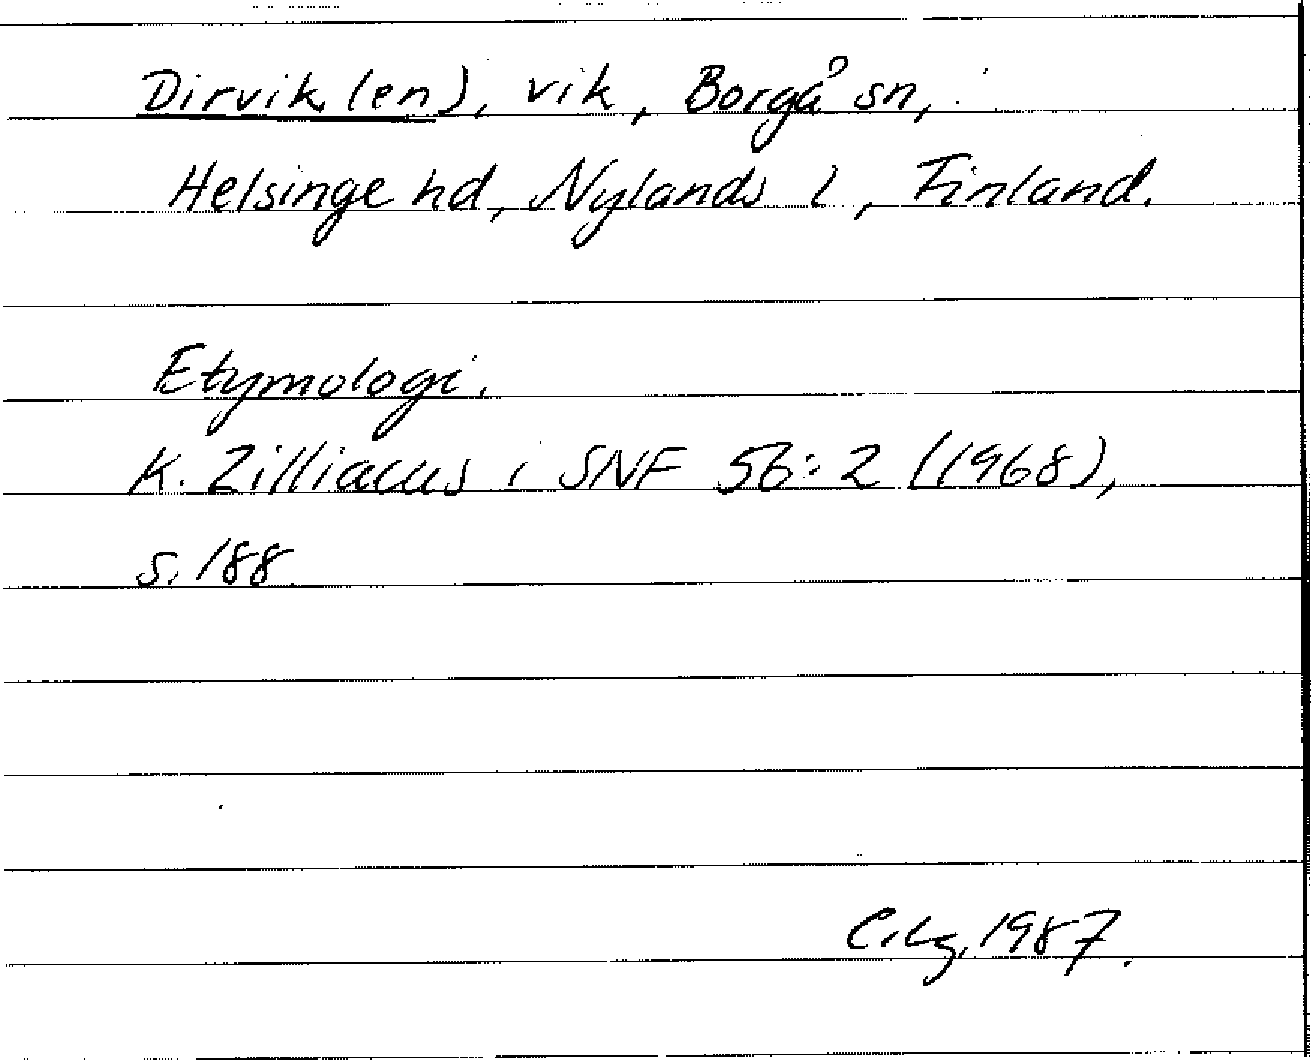 Dirvik (en), vik, Borgå sn,
Helsinge hd, Nylands l, Finland.
Etymologi.
K. Zilliacus i SNF 56:2 (1968),
s. 188.
1987.